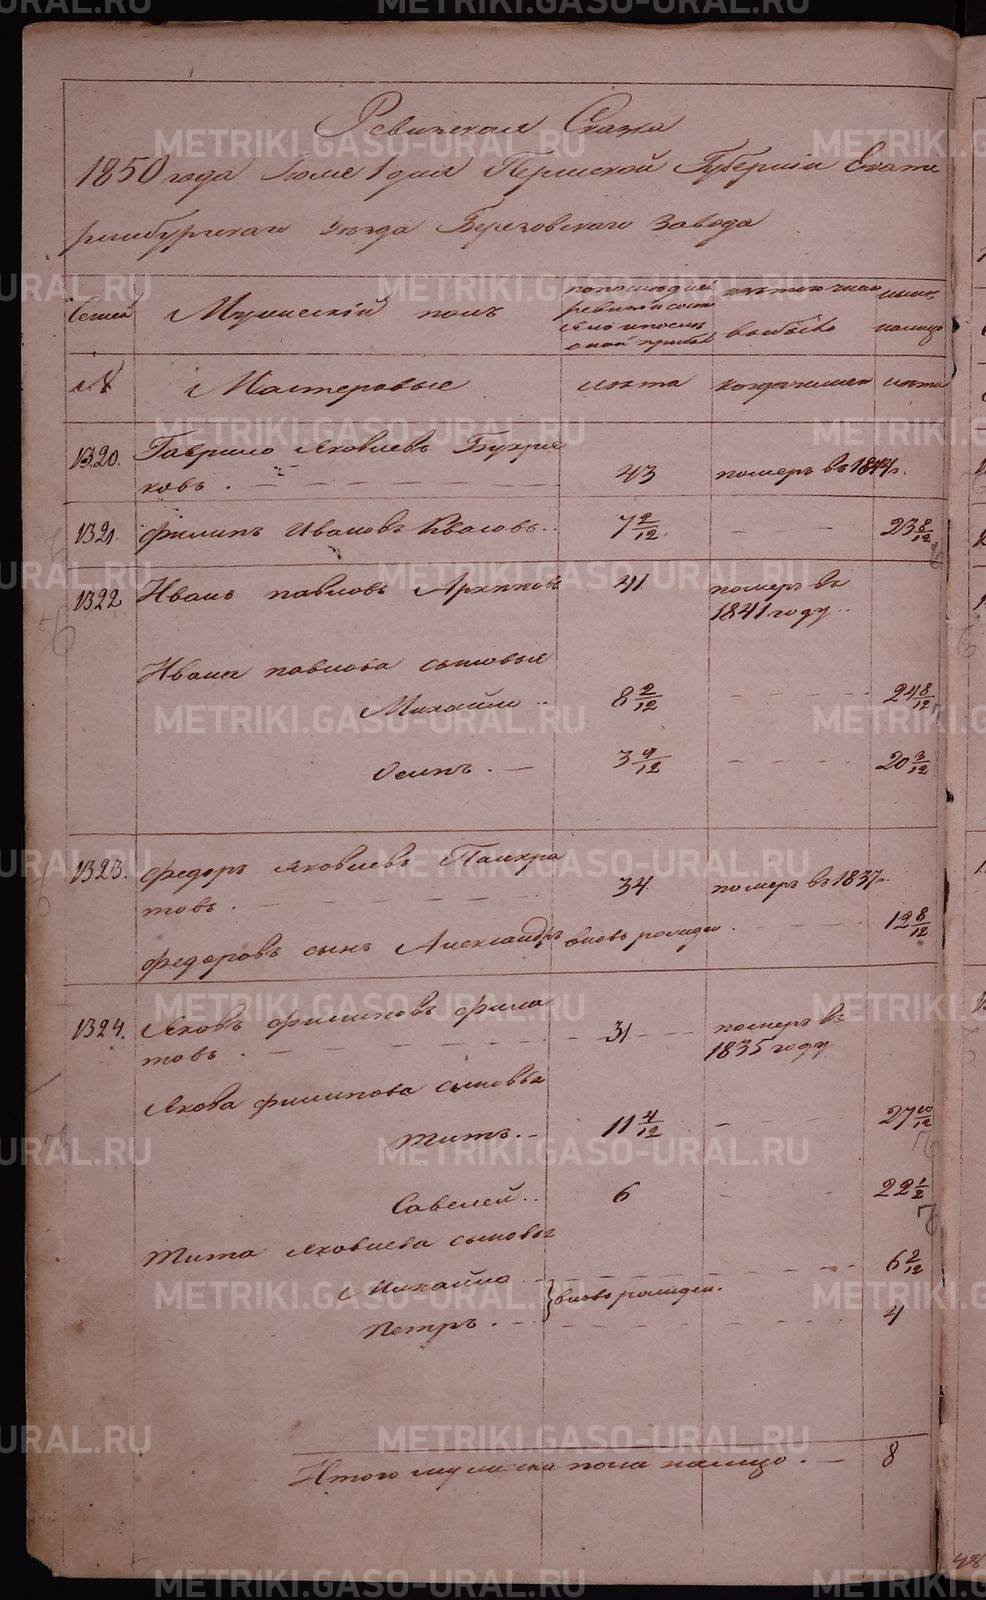 Ревижская Сказка
1850 года Июне 1 дня Пермской Губернiи Екате
ринбургскаго уезда Березовскаго Завода
Семей
Мужескiй полъ
по последней
ревизiи состо
яло и после
оной прибыло
изъ того числа
выбыло
ныне
налицо
№
Мастеровые
лета
когда именно
лета
1320.
Гаврило Яковлевъ
ковъ.
43
померъ въ 1844г.
1321.
Филипъ Ивановъ Квасовъ..
7 2/12
23 8/12
1322
Иванъ Павловъ Архиповъ
41.
померъ въ
1841 году..
Ивана Павлова сыновья
Михайло..
8 2/12
24 8/12
Осипъ.
3 9/12
20 3/12
1323.
Федоръ Яковлевъ Панкра
товъ.
34.
померъ въ 1837г.
Федоровъ сынъ Александръ
вновь рожден.
12 8/12
1324.
Яковъ Филиповъ Фила
товъ.
31
померъ въ
1835 году
Якова Филипова сыновья
Титъ.
11 4/12
27 10/12
Савелей..
6
22 1/2
Тита Яковлева сыновья
Михайло
6 2/12
вновь рожден.
Петръ.
4
Итого мужеска пола налицо.
8
48
METRIKI.GASO-URAL.RU